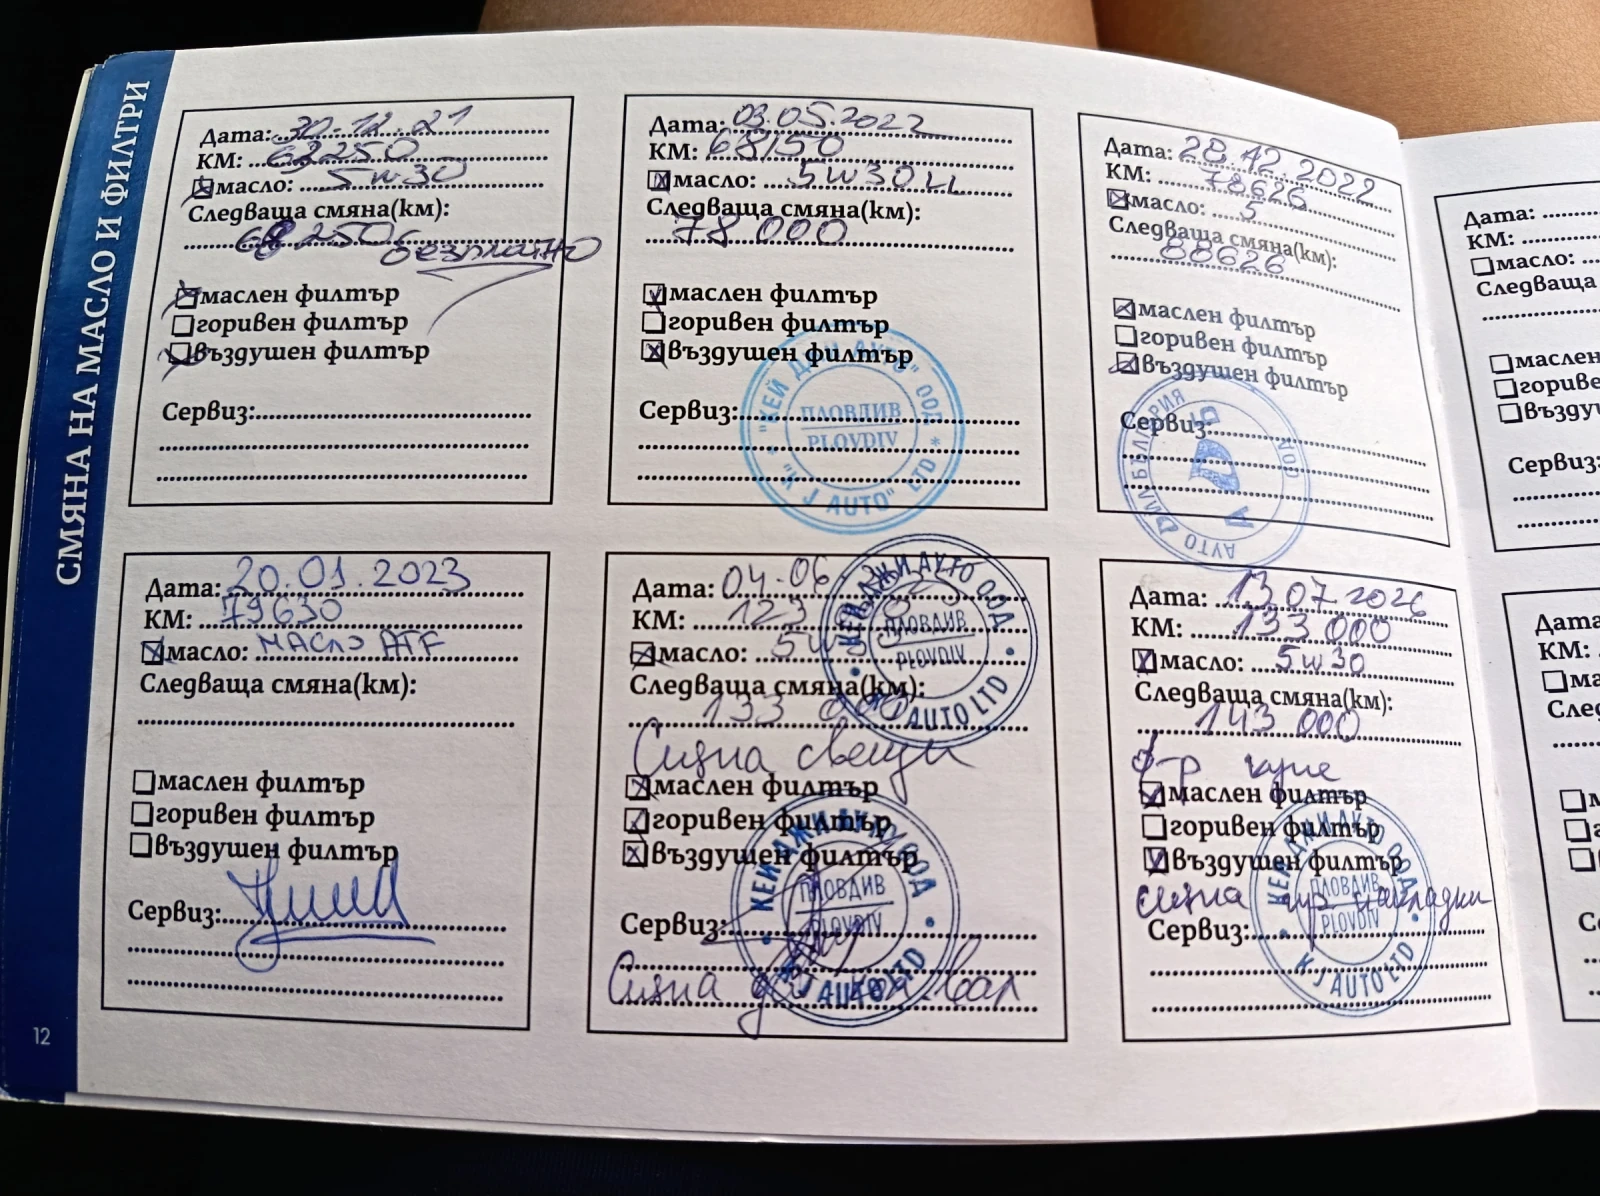 СМЯНА НА МАСЛО И ФИЛТРИ
Дата: 30.12.21
КМ: 62250
масло: 5w30
Следваща смяна(км):
68250 безплатно
маслен филтър
горивен филтър
въздушен филтър
Сервиз:
Дата: 03.05.2022
КМ: 68150
масло: 5w30LL
Следваща смяна(км):
78 000
маслен филтър
горивен филтър
въздушен филтър
Сервиз:
"КЕЙ ДЖИ АУТО" ООД * "K J AUTO" LTD *
ПЛОВДИВ
PLOVDIV
Дата: 28.12.2022
КМ: 78626
масло: 5
Следваща смяна(км):
88626
маслен филтър
горивен филтър
въздушен филтър
Сервиз:
Дата: 20.01.2023
КМ: 79630
масло: МАСЛО ATF
Следваща смяна(км):
маслен филтър
горивен филтър
въздушен филтър
Сервиз:
Дата: 04.06
КМ: 123
масло: 5w30
Следваща смяна(км):
133 000
Смяна свещи
маслен филтър
горивен филтър
въздушен филтър
Сервиз:
Смяна
КЕЙ ДЖИ АУТО ООД • K J AUTO LTD •
ПЛОВДИВ
PLOVDIV
КЕЙ ДЖИ АУТО ООД • K J AUTO LTD •
ПЛОВДИВ
PLOVDIV
Дата: 13.07.2026
КМ: 133 000
масло: 5w30
Следваща смяна(км):
143 000
ф-р купе
маслен филтър
горивен филтър
въздушен филтър
смяна накладки
Сервиз:
КЕЙ ДЖИ АУТО ООД • K J AUTO LTD •
ПЛОВДИВ
PLOVDIV
12
Дата:
КМ:
масло:
Следваща
маслен
въздуш
Сервиз:
Дата:
КМ: